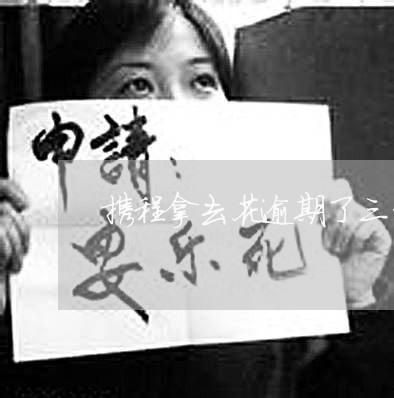 申請:
携程拿去花逾期了三
安乐死